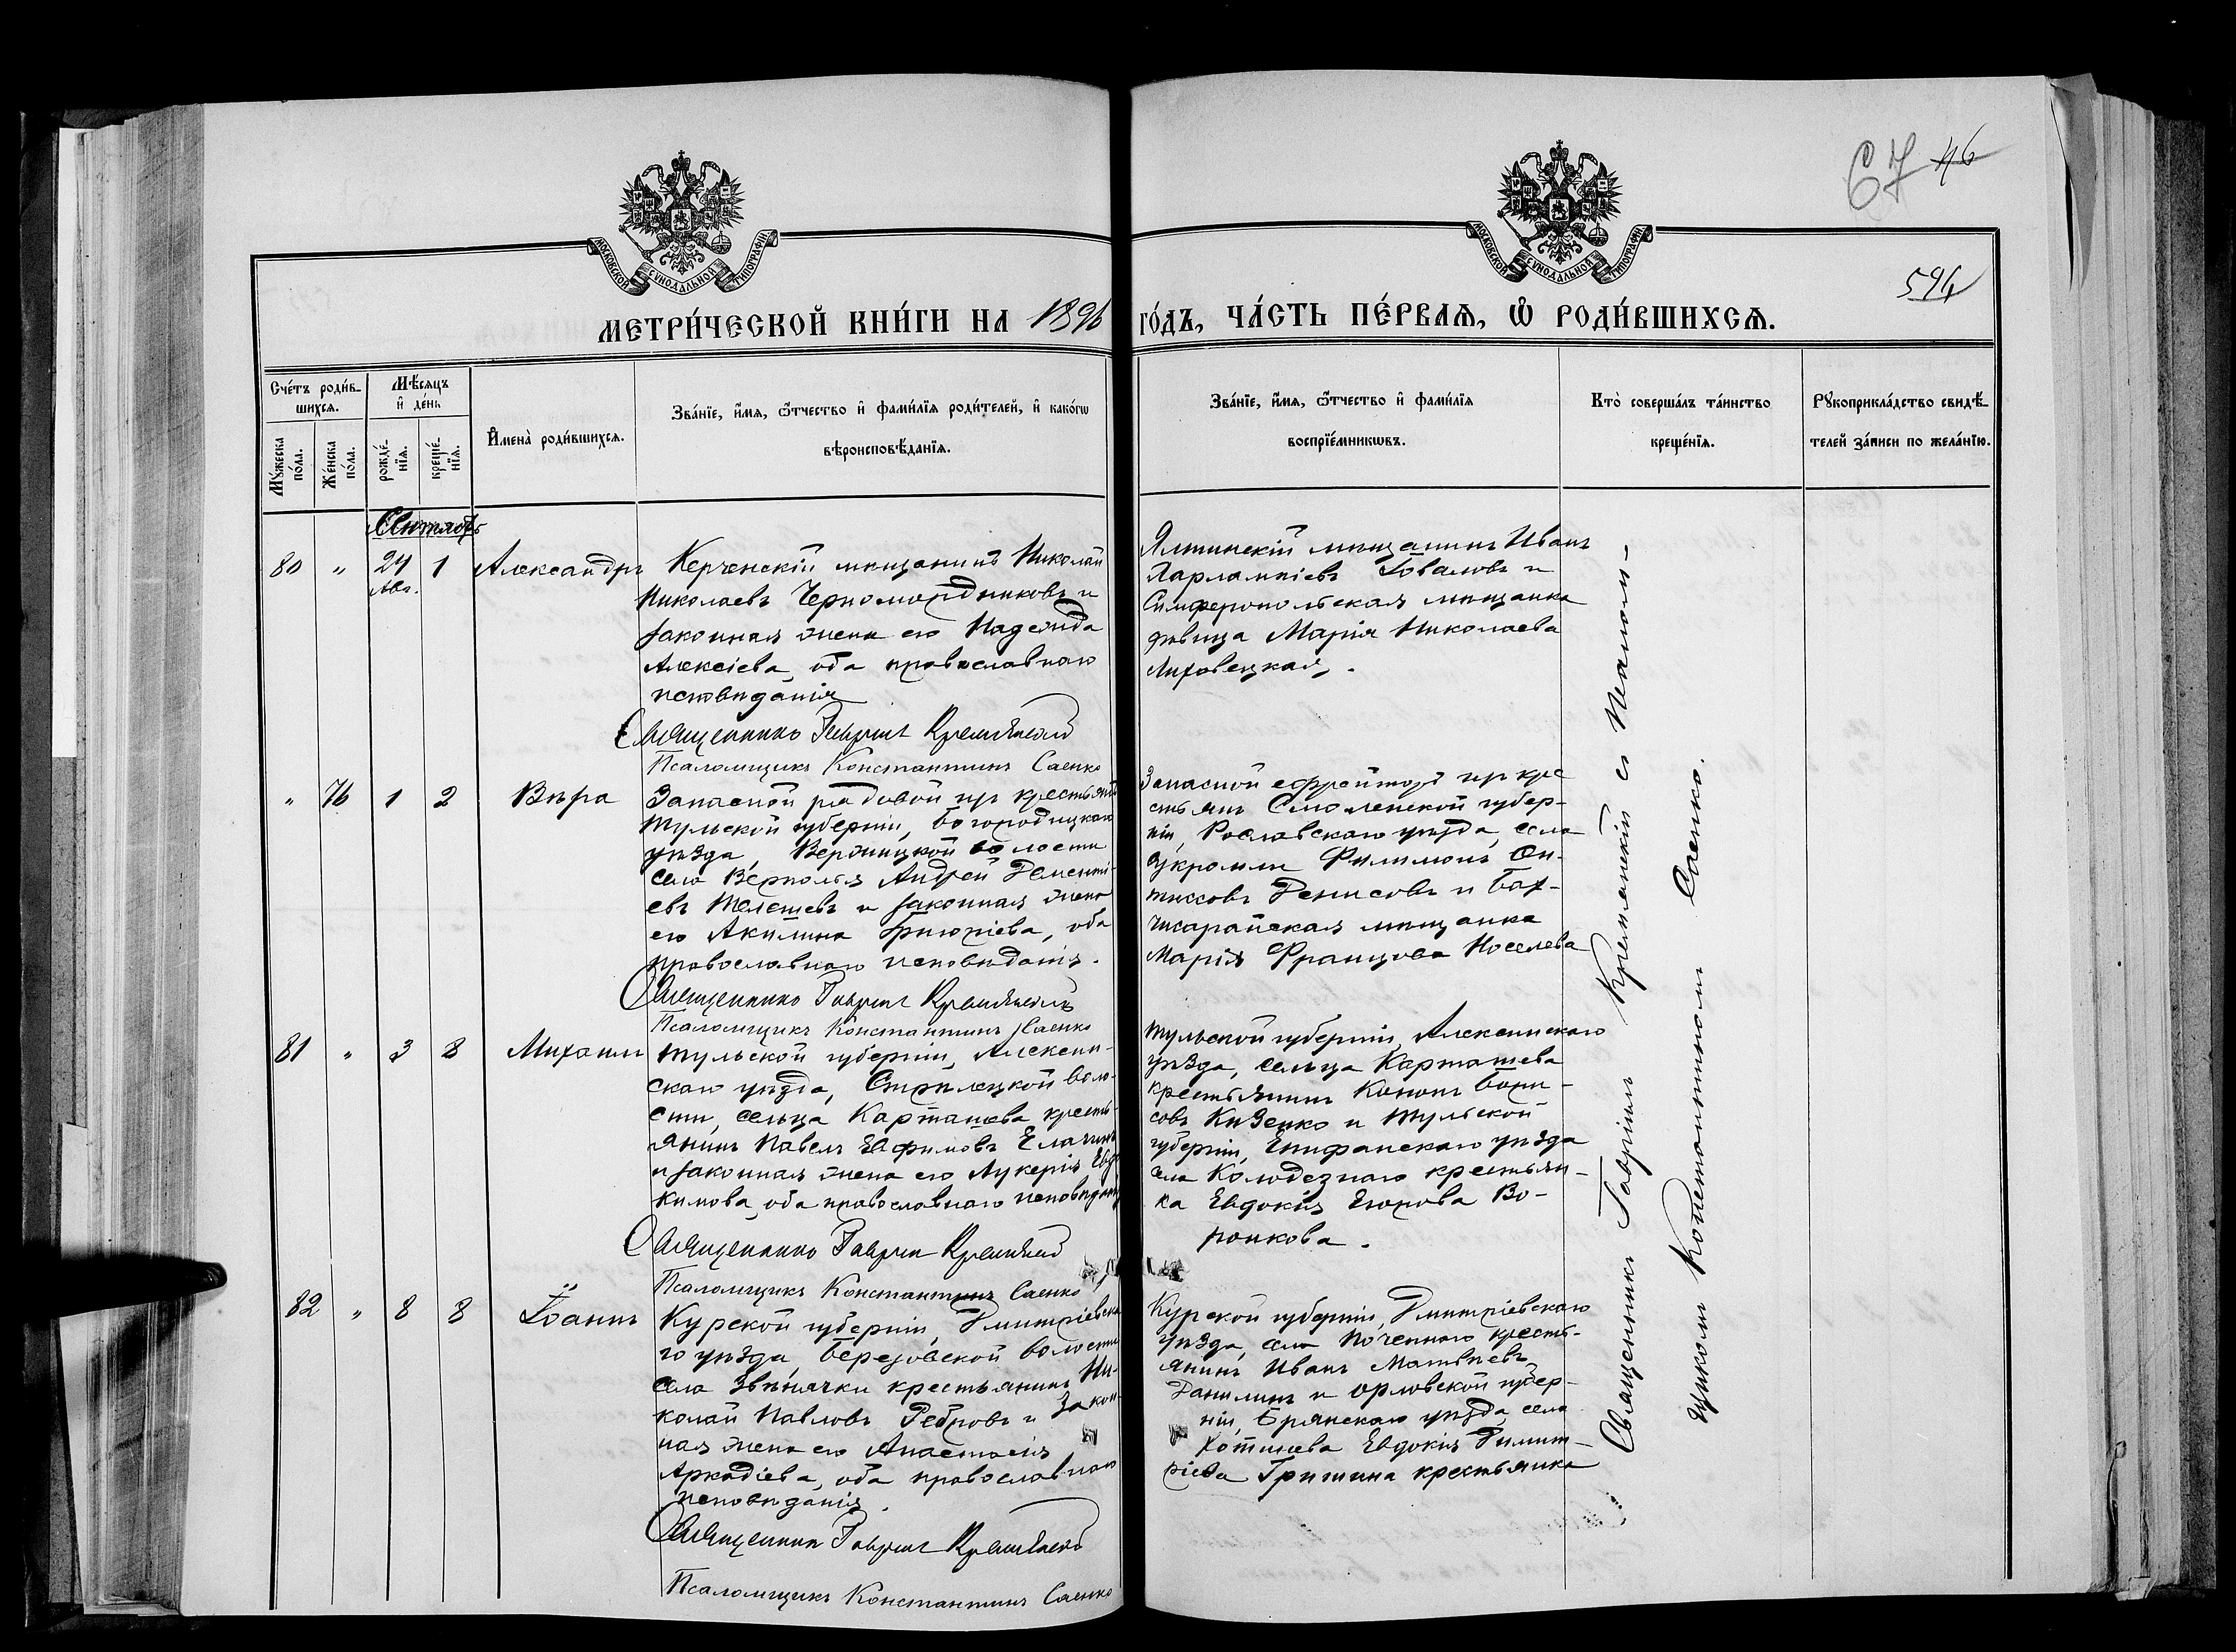 67 46
594
МОСКОВСКОЙ СѴНОДАЛЬНОЙ ТИПОГРАФІИ
МОСКОВСКОЙ СѴНОДАЛЬНОЙ ТИПОГРАФІИ
МЕТРИ́ЧЕСКОЙ КНИ́ГИ НА 1896 ГО́ДЪ, ЧА́СТЬ ПЕ́РВАѦ, Ѡ҆ РОДИ́ВШИХСѦ.
Сче́тъ роди́в-
шихсѧ.
Мѣ́сѧцъ
и҆ де́нь
Мꙋ́жеска
по́ла.
Же́нска
по́ла.
рожде́-
нїѧ.
креще́-
нїѧ.
И҆мена̀ роди́вшихсѧ.
Зва́нїе, и҆́мѧ, ѻ҆́тчество и҆ фами́лїѧ роди́телей, и҆ како́гѡ
вѣроисповѣ́данїѧ.
Зва́нїе, и҆́мѧ, ѻ҆́тчество и҆ фами́лїѧ
воспрїе́мникѡвъ.
Кто̀ соверша́лъ та́инство
креще́нїѧ.
Рꙋкоприкла́дство свидѣ́-
телей за́писи по жела́нїю.
Сентябрь
80 " 24 1 Александръ
Авг.
Керченскій мѣщанинъ Николай
Николаевъ Черномордниковъ и
законная жена его Надежда
Алексіева, оба православнаго
исповѣданія
Священникъ Гавріилъ Кремянскій
Псаломщикъ Константинъ Саенко
Ялтинскій мѣщанинъ Иванъ
Харлампіевъ Ховаловъ и
Симферопольская мѣщанка
дѣвица Марія Николаева
Лиховецкая.
" 76 1 2 Вѣра
Запасной рядовой изъ крестьянъ
Тульской губерніи, Богородицкаго
уѣзда, волости
села Андрей Дементі-
евъ Телешевъ и законная жена
его Акилина Григоріева, оба
православнаго исповѣданія.
Священникъ Гавріилъ Кремянскій
Псаломщикъ Константинъ Саенко
Запасной ефрейторъ изъ кре
стьянъ Смоленской губер-
ніи, Рославскаго уѣзда, села
Филимонъ Он-
Денисовъ и Бах-
чисарайская мѣщанка
Марія Францова Носелева
81 " 3 8 Михаилъ
Тульской губерніи, Алексин-
скаго уѣзда, Стрѣлецкой воло-
сти, сельца Карташева кресть-
янинъ Павелъ Евфимовъ Елагинъ
и законная жена его Лукерія Евдо
кимова, оба православнаго исповѣданія
Священникъ Гавріилъ Кремянскій
Псаломщикъ Константинъ Саенко
Тульской губерніи, Алексинскаго
уѣзда, сельца Карташева
крестьянинъ Кононъ Бори-
совъ Кизенко и Тульской
губерніи, Епифанскаго уѣзда
села Колодезнаго крестьян-
ка Евдокія Егорова Во-
ронкова.
82 " 8 8 Іоаннъ
Курской губерніи, Дмитріевска
го уѣзда, Березовской волости
села Звѣнячки крестьянинъ Ни-
колай Павловъ Ребровъ и закон-
ная жена его Анастасія
Аркадіева, оба православнаго
исповѣданія.
Священникъ Гавріилъ Кремянскій
Псаломщикъ Константинъ Саенко
Курской губерніи, Дмитріевскаго
уѣзда, села Поченнаго кресть-
янинъ Иванъ Матвѣевъ
Данилинъ и Орловской губер-
ніи, Брянскаго уѣзда, села
Хотылева Евдокія Димит-
ріева Гришина крестьянка
Священникъ Гавріилъ Кремянскій съ Псалом-
щикомъ Константиномъ Саенко.